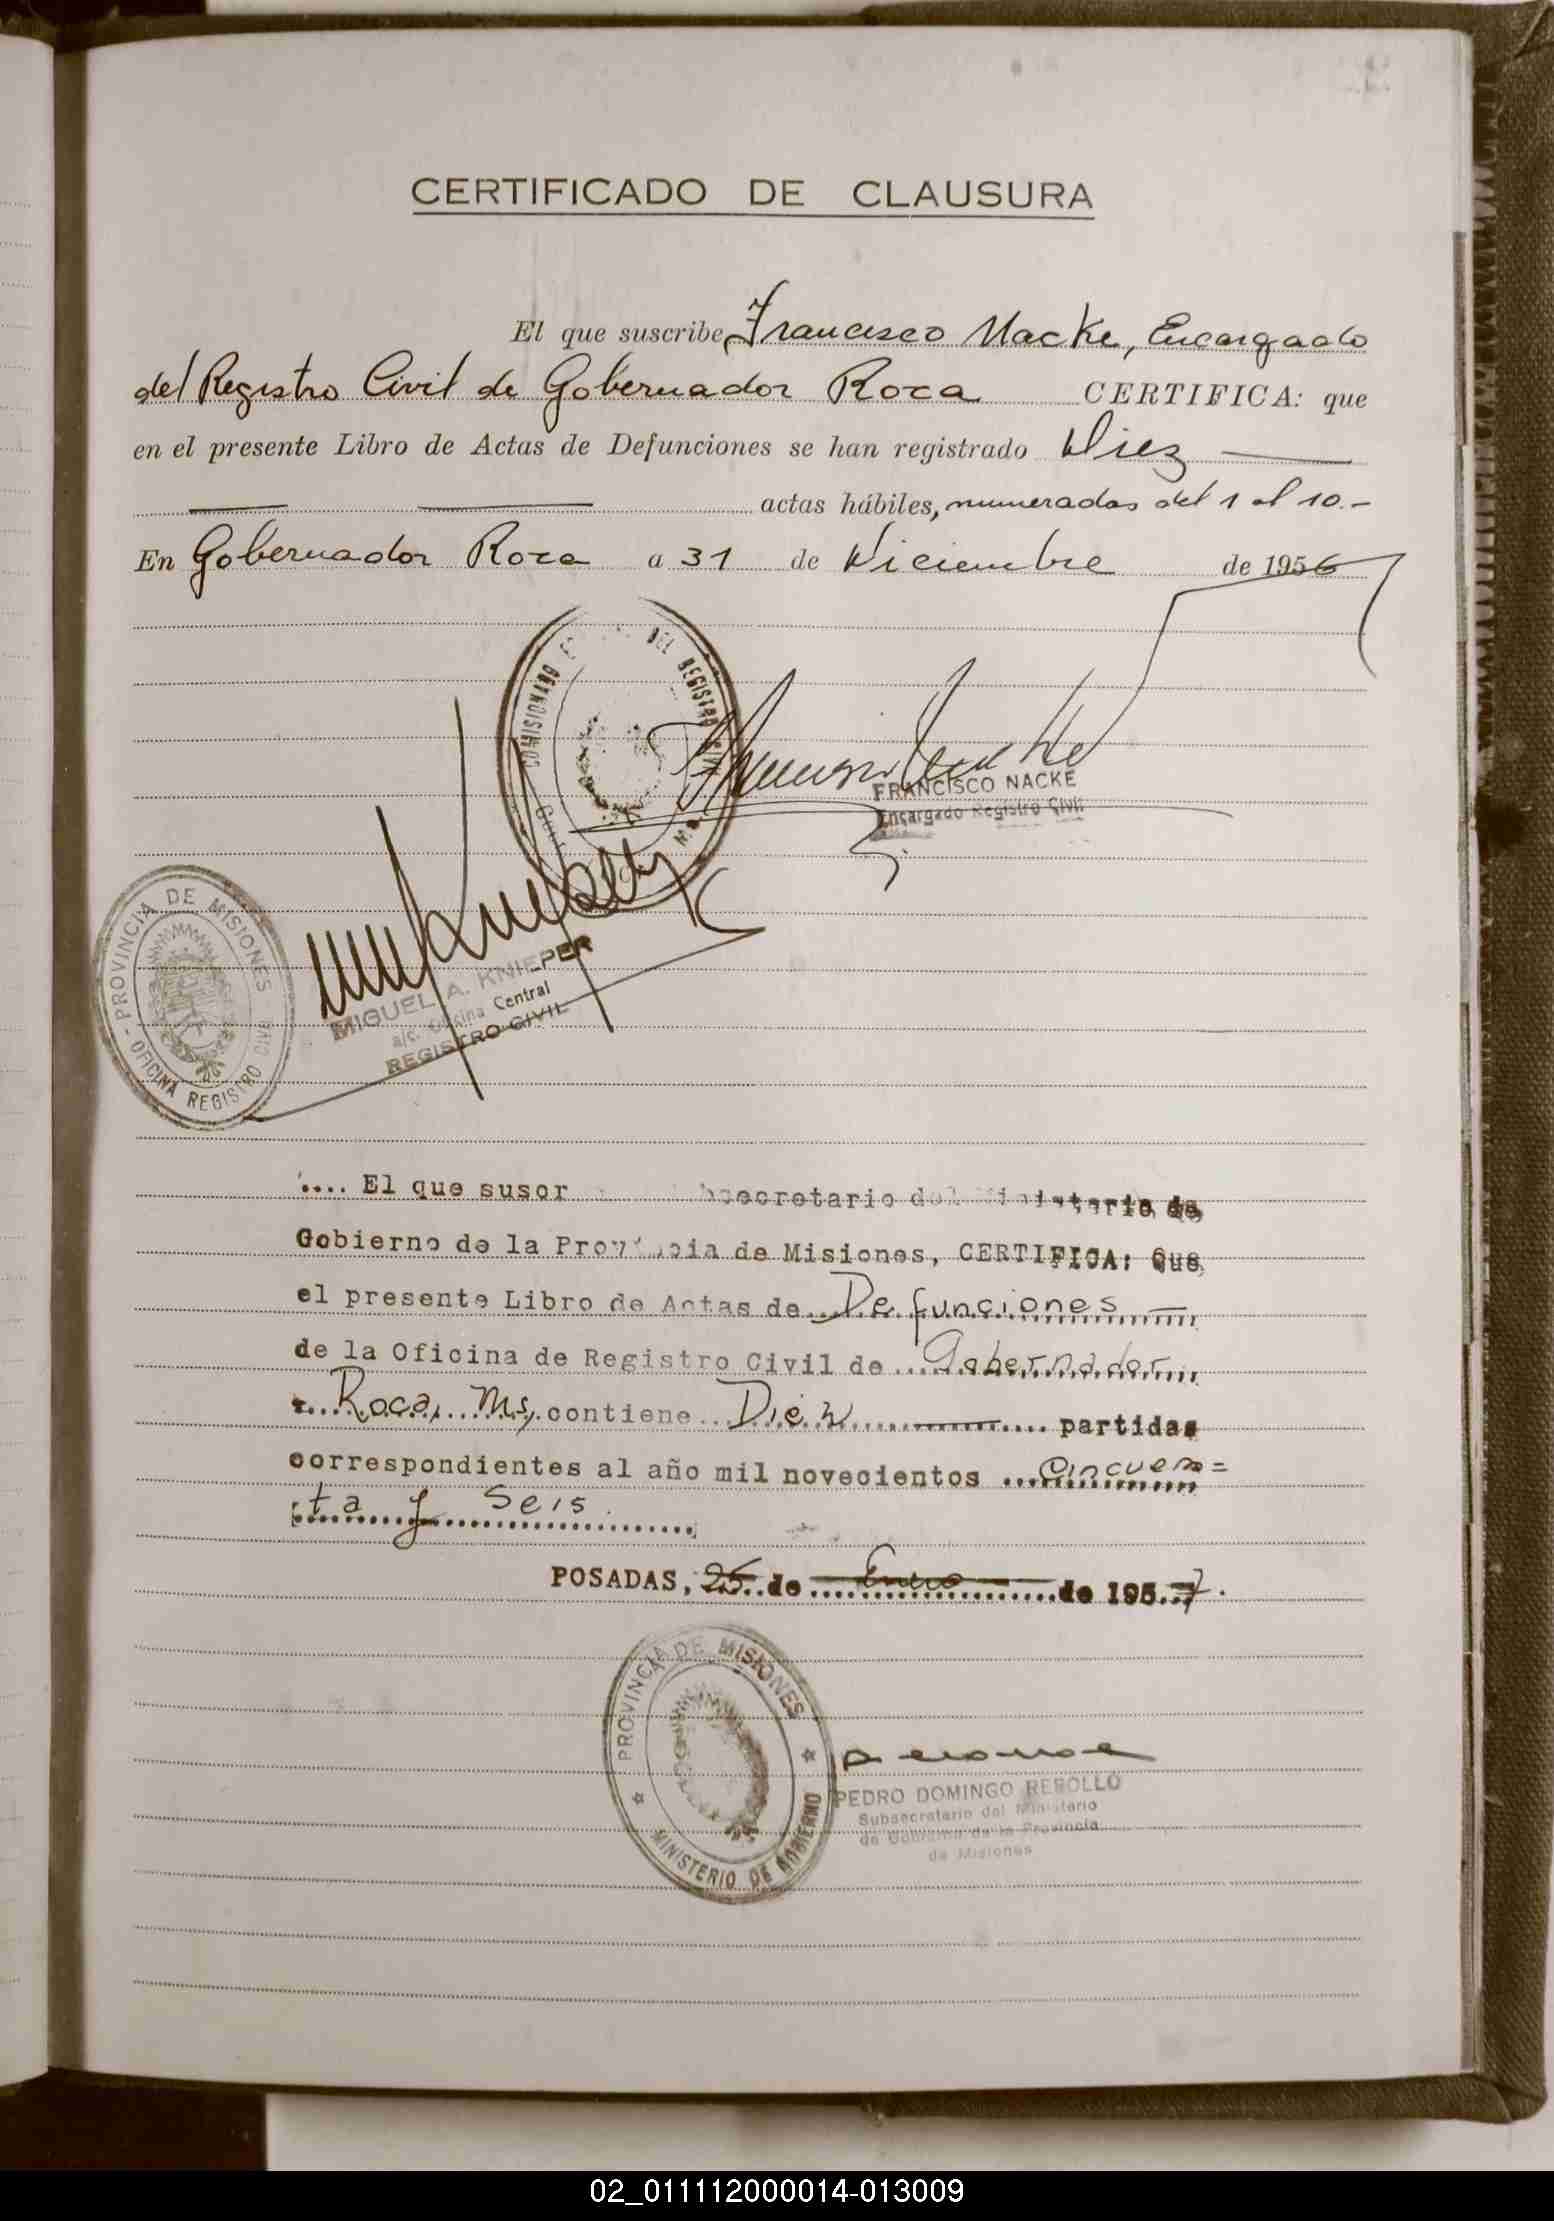 CERTIFICADO DE CLAUSURA
El que suscribe, Francisco Nacke, Encargado
del Registro Civil de Gobernador Roca CERTIFICA: que
en el presente Libro de Actas de Defunciones se han registrado Diez
actas hábiles, numeradas del 1 al 10.-
En Gobernador Roca a 31 de Diciembre de 1956
COMISIONADO DEL REGISTRO CIVIL
FRANCISCO NACKE
Encargado Registro Civil
PROVINCIA DE MISIONES
OFICINA REGISTRO CIVIL
MIGUEL A. KNIEPER
a/c. Oficina Central
REGISTRO CIVIL
.... El que suscr bsecretario del Ministerio de
Gobierno de la Provincia de Misiones, CERTIFICA: Que
el presente Libro de Actas de Defunciones —
de la Oficina de Registro Civil de Gobernador
Roca, Ms, contiene Diez partidas
correspondientes al año mil novecientos cincuen=
ta y seis
POSADAS, 25 de Enero de 1957.
PROVINCIA DE MISIONES
MINISTERIO DE GOBIERNO
PEDRO DOMINGO REBOLLO
Subsecretario del Ministerio
de Gobierno de la Provincia
de Misiones
02_011112000014-013009